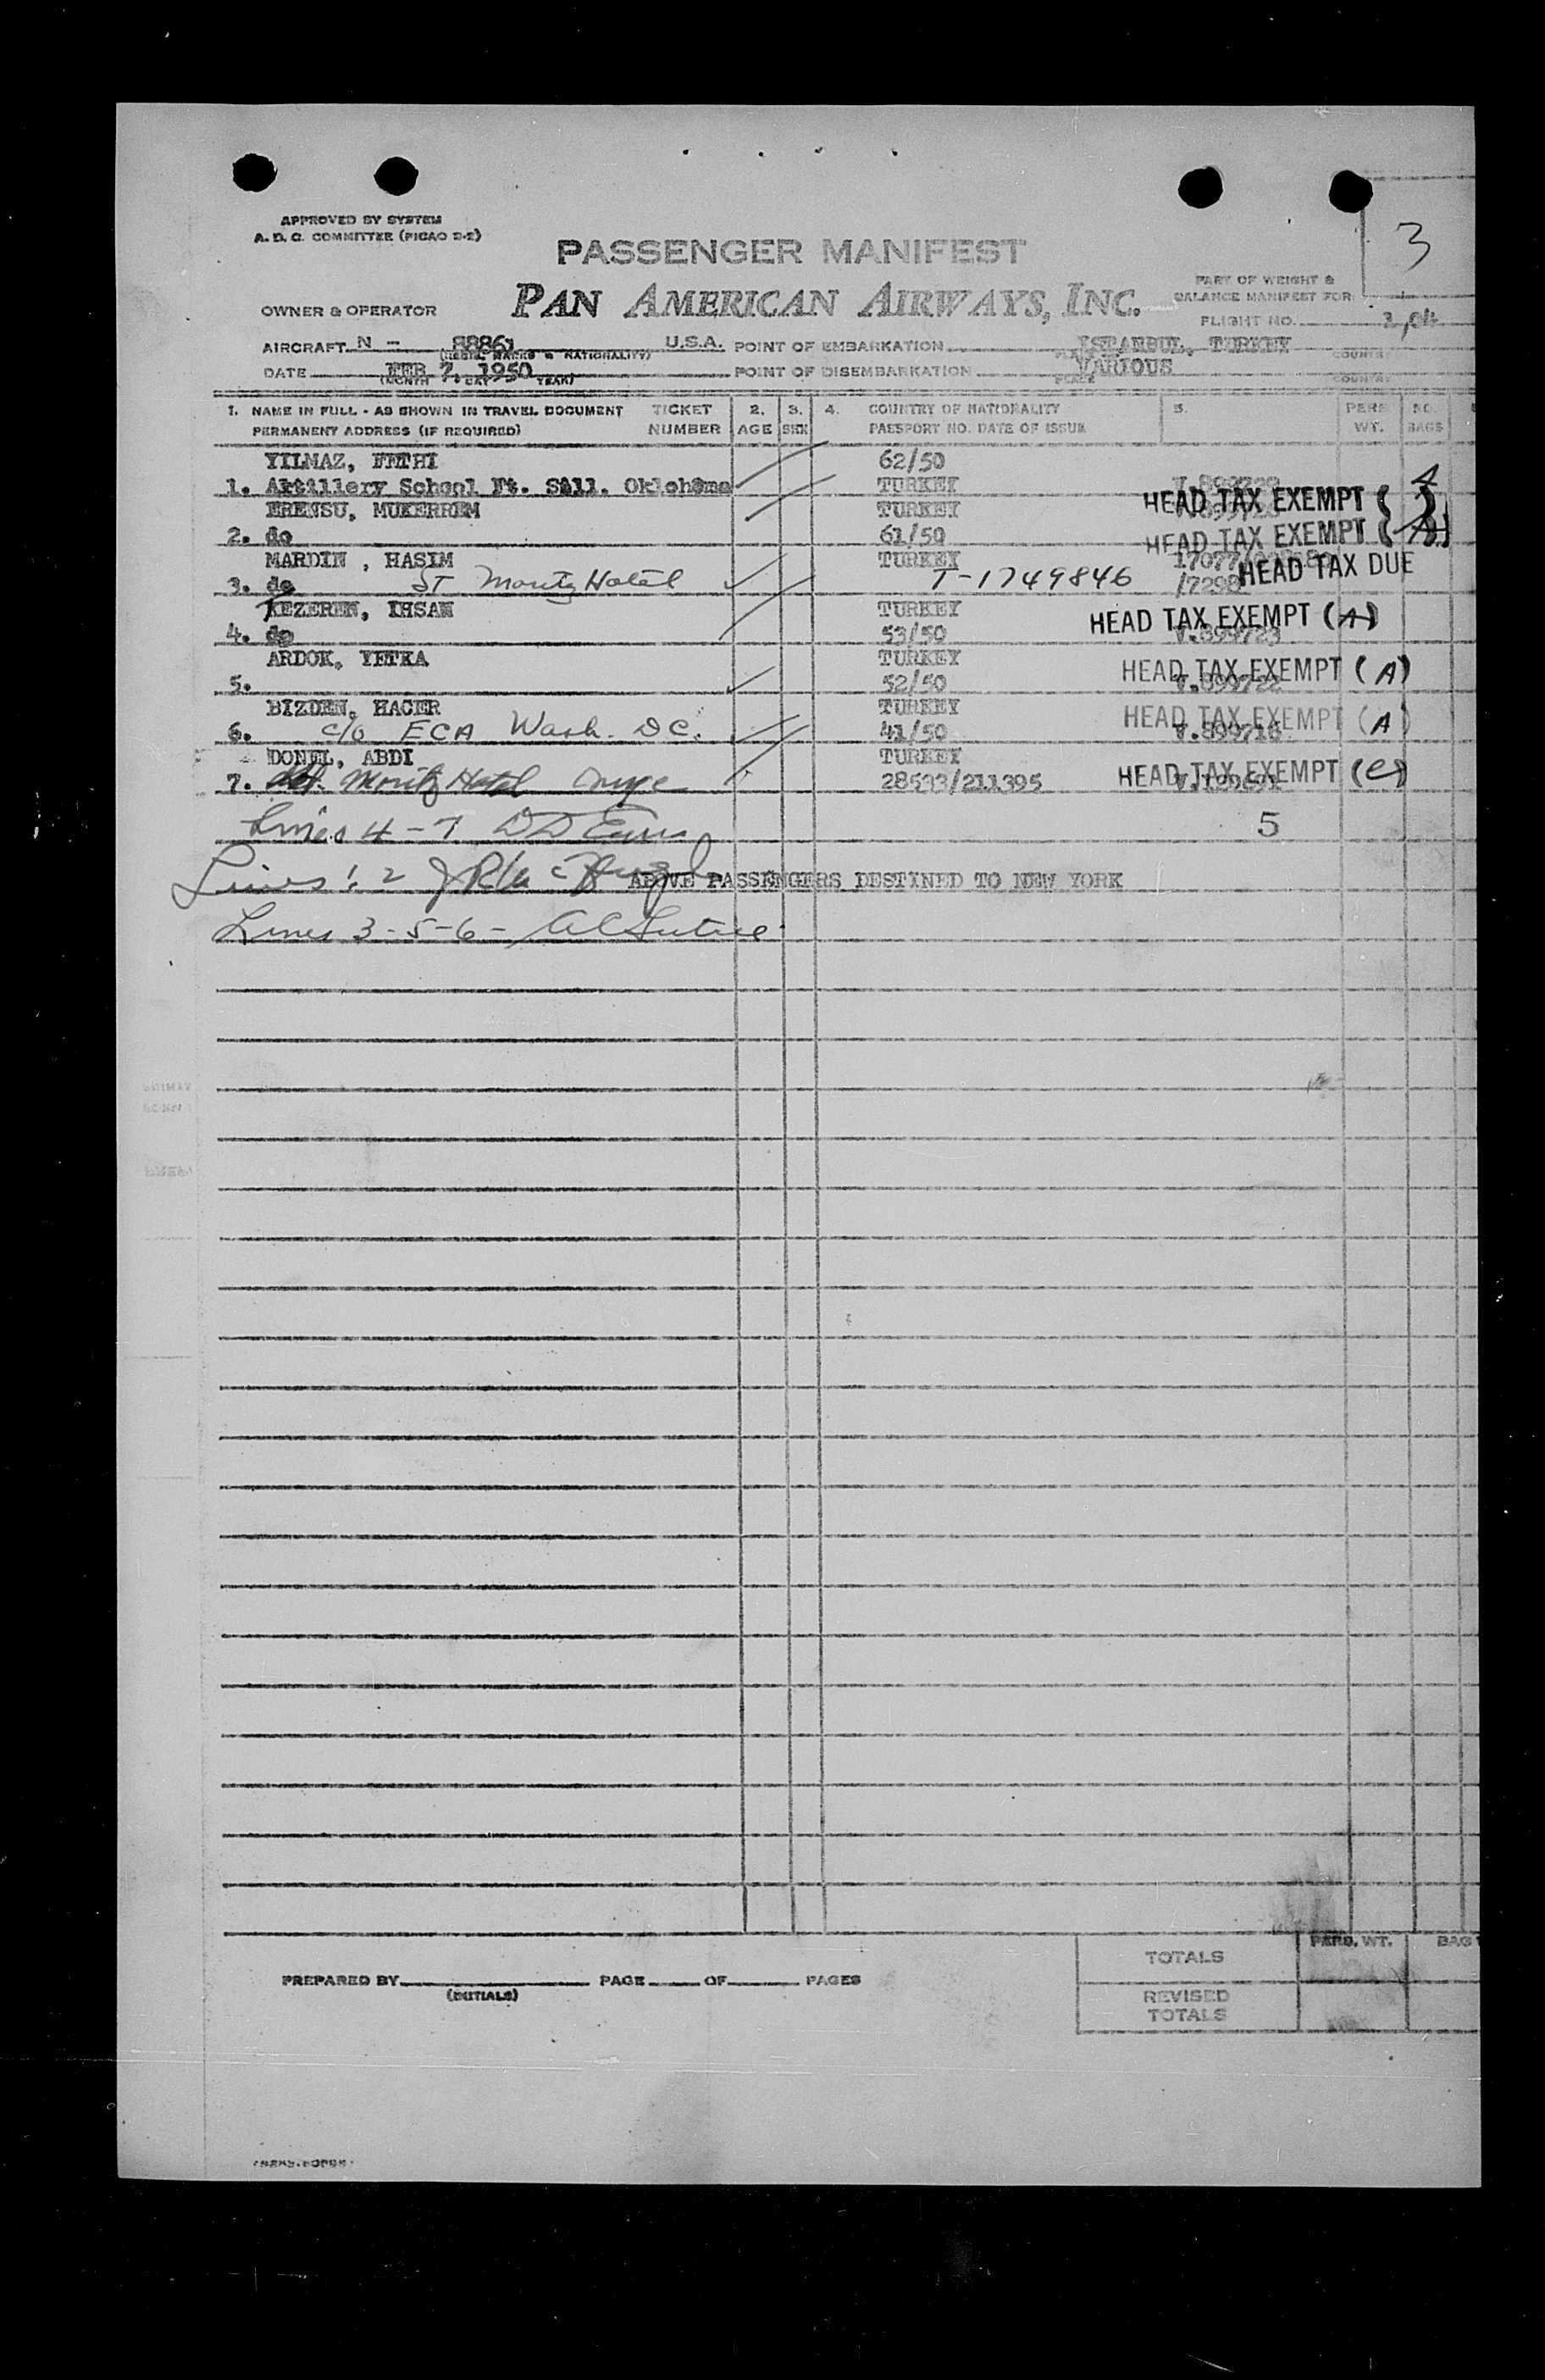 APPROVED BY SYSTEM
A. D. C. COMMITTEE (PICAO 2-2)
3
PASSENGER MANIFEST
PART OF WEIGHT &
BALANCE MANIFEST FOR
OWNER & OPERATOR PAN AMERICAN AIRWAYS, INC.
FLIGHT NO.
AIRCRAFT N - 88861 U.S.A. POINT OF EMBARKATION ISTANBUL, TURKEY
(REGIS. MARKS & NATIONALITY) PLACE COUNTRY
DATE FEB 7, 1950 POINT OF DISEMBARKATION VARIOUS
(MONTH DAY YEAR) PLACE COUNTRY
1. NAME IN FULL - AS SHOWN IN TRAVEL DOCUMENT TICKET 2. 3. 4. COUNTRY OF NATIONALITY 5. PERS. NO.
PERMANENT ADDRESS (IF REQUIRED) NUMBER AGE SEX PASSPORT NO. DATE OF ISSUE WT. BAGS
YILMAZ, FETHI 62/50
1. Aktillery School Ft. Sill. Oklohoma TURKEY HEAD TAX EXEMPT (
ERENSU, MUKERREM TURKEY
2. do 61/50 HEAD TAX EXEMPT (
MARDIN , HASIM TURKEY HEAD TAX DUE
3. do ST Moritz Hotel T-1749846
TEZEREN, IHSAN TURKEY HEAD TAX EXEMPT (A)
4. do 53/50
ARDOK, YETKA TURKEY HEAD TAX EXEMPT (A)
5. 52/50
BIZDEN, HACER TURKEY HEAD TAX EXEMPT (A)
6. c/o ECA Wash. DC. 41/50 V.899716
DONEL, ABDI TURKEY HEAD TAX EXEMPT (C)
7. Moritz Hotel 28533/211395
Lines 4-7 5
Lines 1, 2 ABOVE PASSENGERS DESTINED TO NEW YORK
Lines 3-5-6-
TOTALS PERS. WT. BAG
PREPARED BY PAGE OF PAGES
(INITIALS)
REVISED
TOTALS